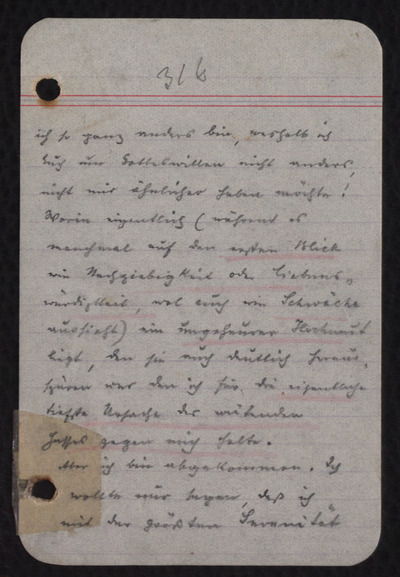 316
ich so ganz anders bin, weshalb ich
Euch um Gotteswillen nicht anders,
nicht mir ähnlicher haben möchte!
Worin eigentlich (während es
manchmal auf den ersten Blick
wie Nachgiebigkeit oder Liebens-
würdigkeit, wol auch wie Schwäche
aussieht) ein ungeheurer Hochmut
liegt, den sie auch deutlich heraus-
spüren und den ich für die eigentliche
tiefste Ursache des wütenden
Hasses gegen mich halte.
Aber ich bin abgekommen. Ich
wollte nur sagen, daß ich
mit der größten Serenität